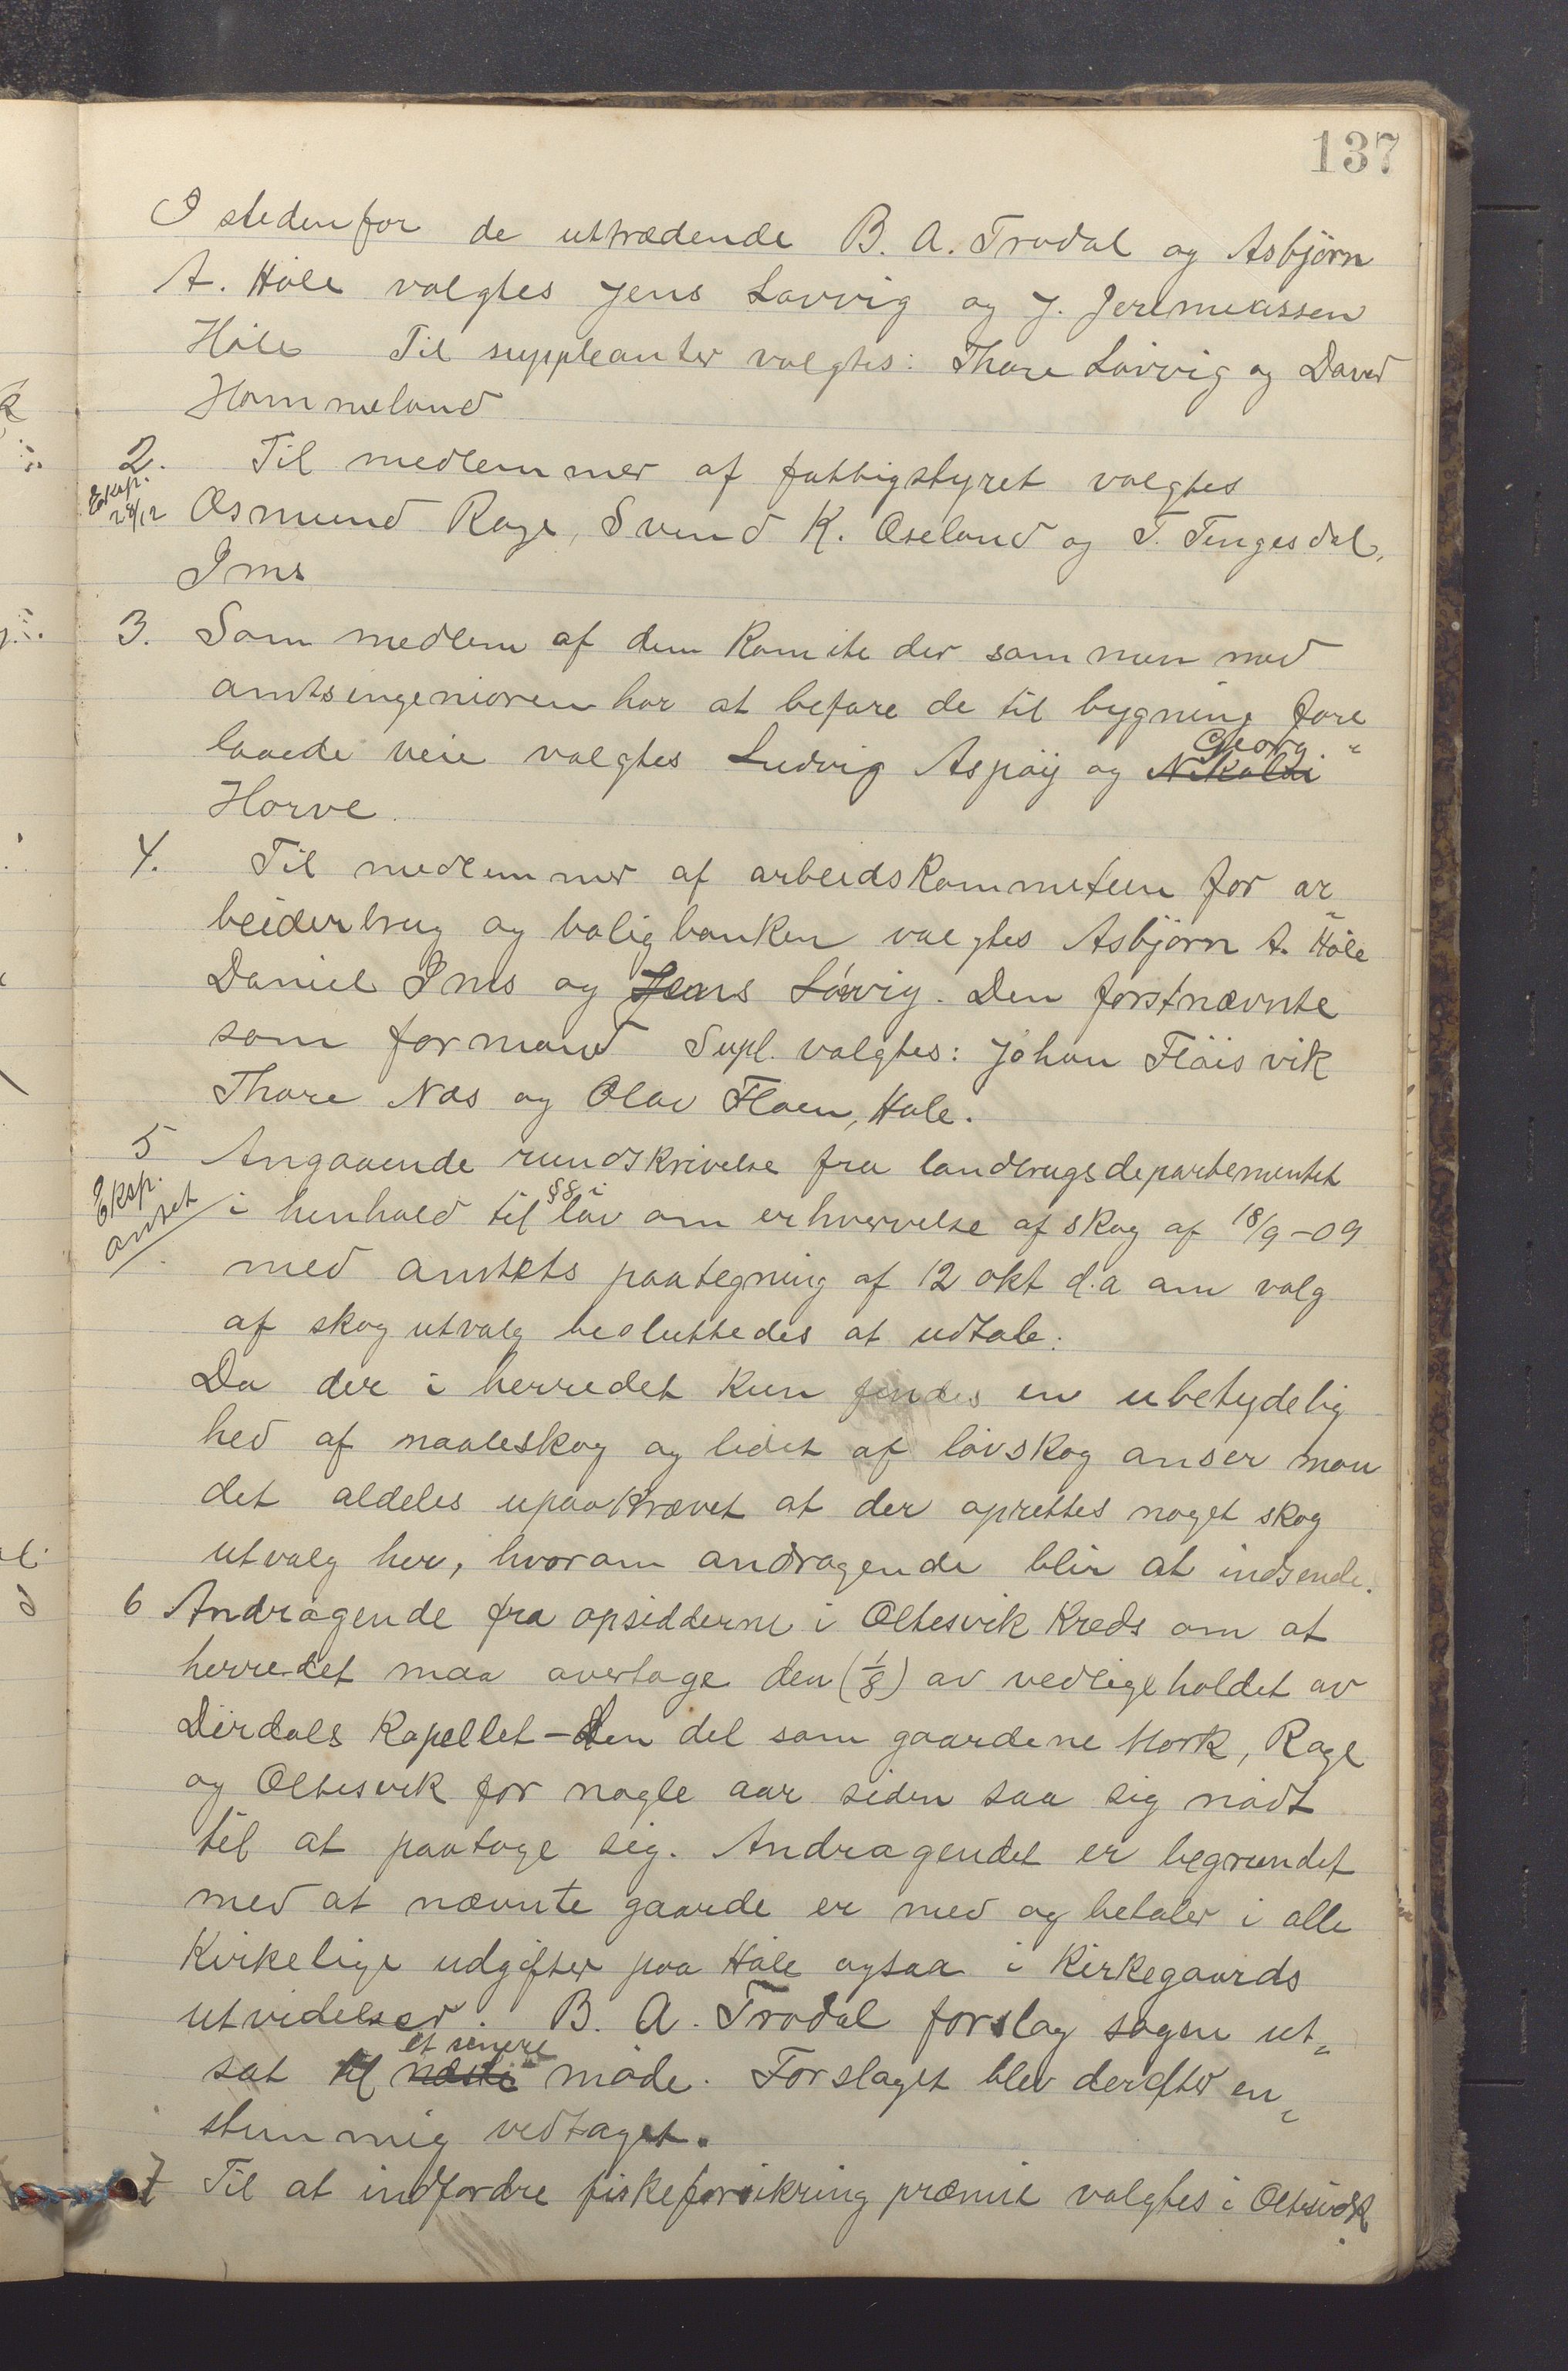 137
I stedenfor de uttrædende B. A. Trodal og Asbjörn
A. Höle valgtes Jens Lövvig og J. Jeremiassen
Höle Til suppleanter valgtes: Thore Lövvig og David
Hommeland
2. Til medlemmer af fattigstyret valgtes
Eksp. 28/12 Osmund Rage, Svend K. Oseland og T. Tengesdal,
Ims
3. Som medlem af den Komite der sammen med
amtsingeniören har at befare de til bygning fore
laaede veie valgtes Ludvig Aspöy og Nikolai Georg
Horve.
4. Til medlemmer af arbeidskommiteen for ar
beiderbrug og boligbanken valgtes Asbjörn A. Höle
Daniel Ims og Jens Lövvig. Den förstnævnte
som formand Supl. valgtes: Johan Flöisvik
Thore Nœs og Olav Floen, Hole.
5 Angaaende rundskrivelse fra landbrugsdepartementet
Eksp. amtet i henhold til §8 i lov om erhvervelse af skog af 18/9-09
med amtets paategning af 12 okt d.a om valg
af skogutvalg besluttedes at udtale:
Da der i herredet kun findes en ubetydelig
hed af naaleskog og lidet af lövskog anser man
det aldeles upaakrævet at der oprettes noget skog
utvalg her, hvorom andragende blir at indsende.
6 Andragende fra opsidderne i Oltesvik Kreds om at
herredet maa overtage den (1/8) av vedligeholdet av
Dirdals Kapellet - den del som gaardene Mork, Rage
og Oltesvik for nogle aar siden saa sig nödt
til at paatage sig. Andragendet er begrundet
med at nævnte gaarde er med og betaler i alle
Kirkelige udgifter paa Höle ogsaa i Kirkegaards
utvidelser. B. A. Trodal forslog sagen ut-
sat til næste et senere möde. Forslaget blev derefter en-
stemmig vedtaget.
7 Til at indfordre fiskeforsikring præmie valgtes i Oltesvik